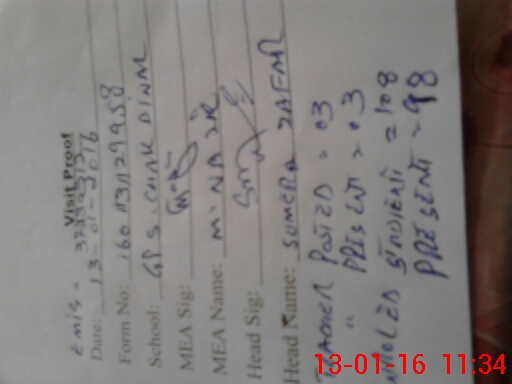 Visit Proof
EMIS =
Date: 13-01-2016
Form No: 160113129958
School: GPS. CHAK DINAL
MEA Sig:
MEA Name:
Head Sig:
Head Name: SUMERA ZAFAR
TEACHER POSTED = 03
" PRESENT = 03
STUDENT = 108
PRESENT = 98
13-01-16 11:34